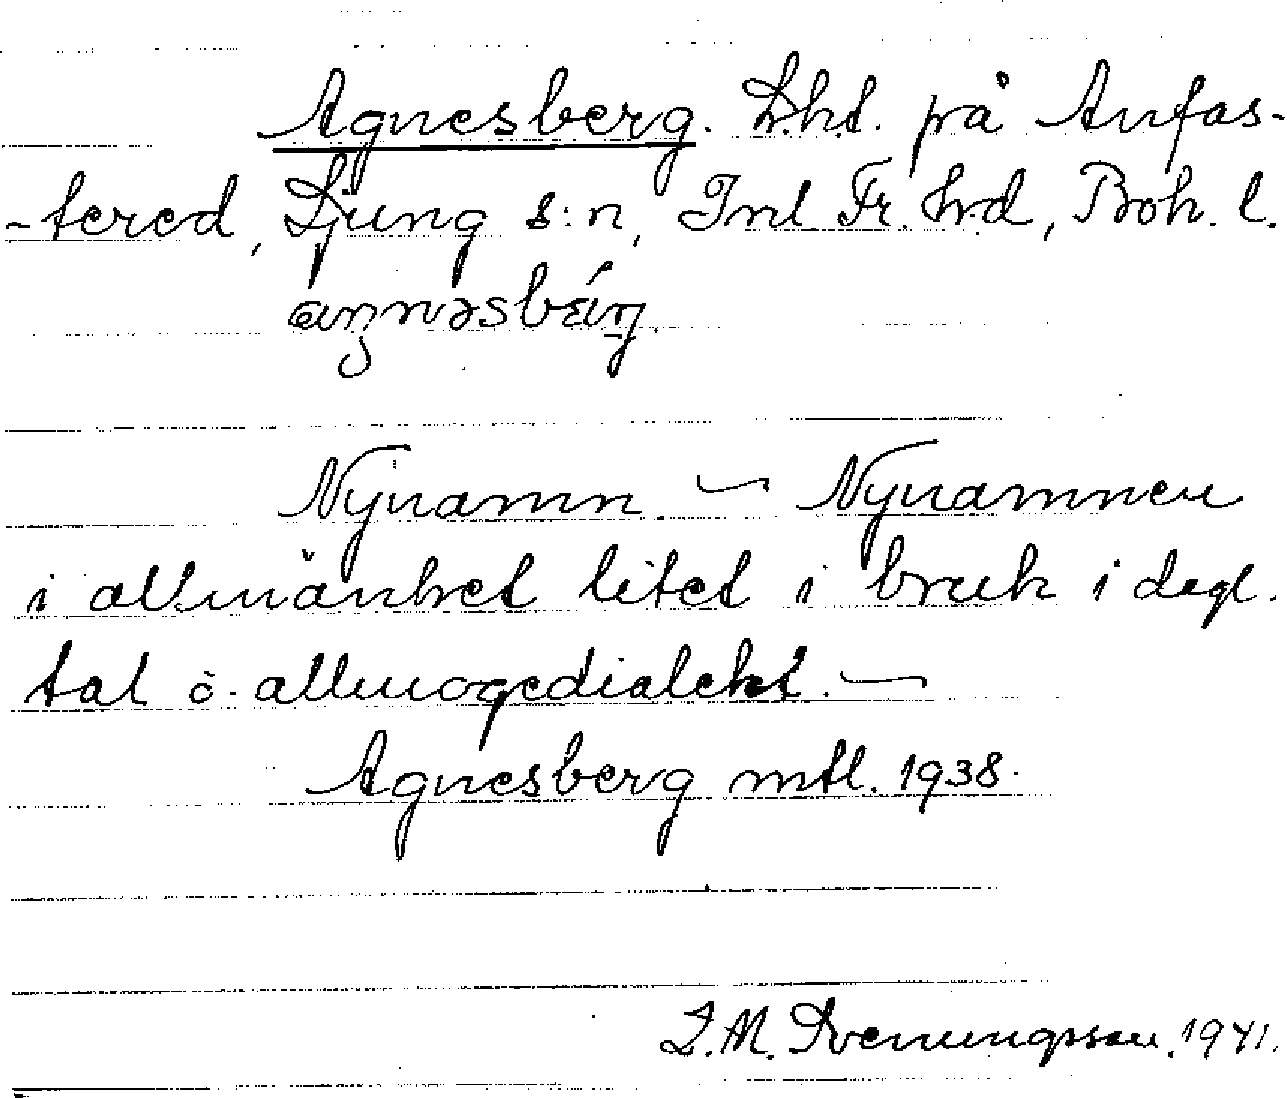 Agnesberg. Lht. på Anfas-
-tered, Ljung s:n, Inl Fr. hrd, Boh. l.
Nynamn. — Nynamnen
i allmänhet litet i bruk i dagl.
tal o. allmogedialekt. —
Agnesberg mtl. 1938.
J. M. Svenungsson. 1941.